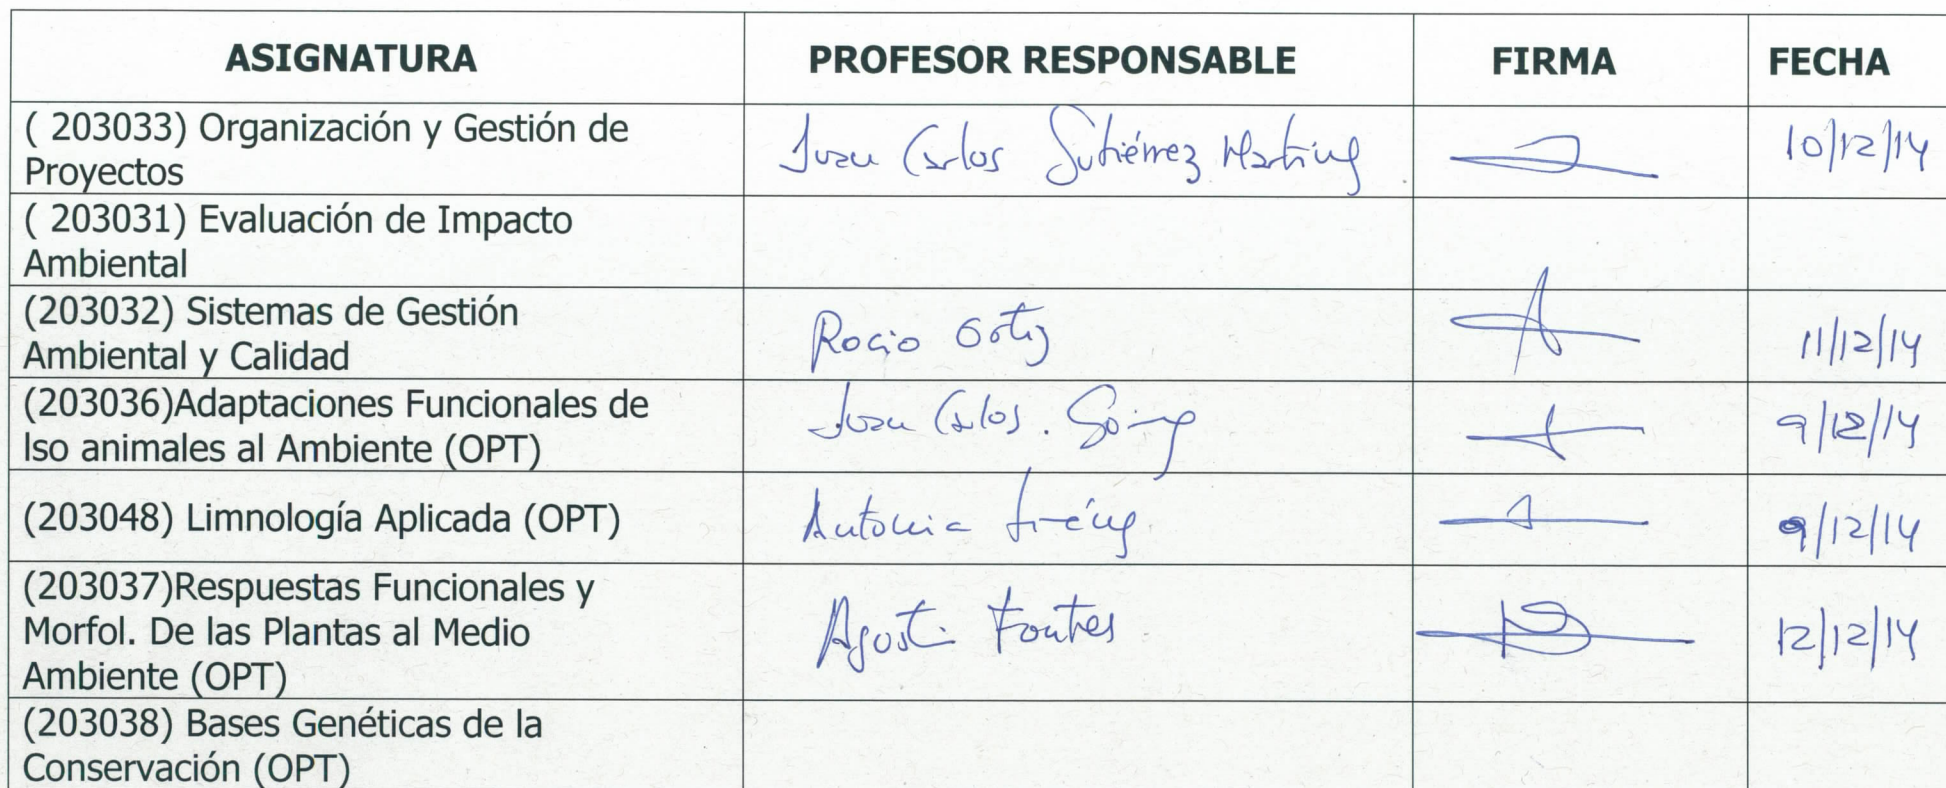 ASIGNATURA PROFESOR RESPONSABLE FIRMA FECHA
( 203033) Organización y Gestión de
Proyectos
Juan Carlos Gutiérrez Martínez 10/12/14
( 203031) Evaluación de Impacto
Ambiental
(203032) Sistemas de Gestión
Ambiental y Calidad
Rocio Ortiz 11/12/14
(203036)Adaptaciones Funcionales de
lso animales al Ambiente (OPT)
Juan Carlos. 9/12/14
(203048) Limnología Aplicada (OPT)
Antonia 9/12/14
(203037)Respuestas Funcionales y
Morfol. De las Plantas al Medio
Ambiente (OPT)
Fontes 12/12/14
(203038) Bases Genéticas de la
Conservación (OPT)